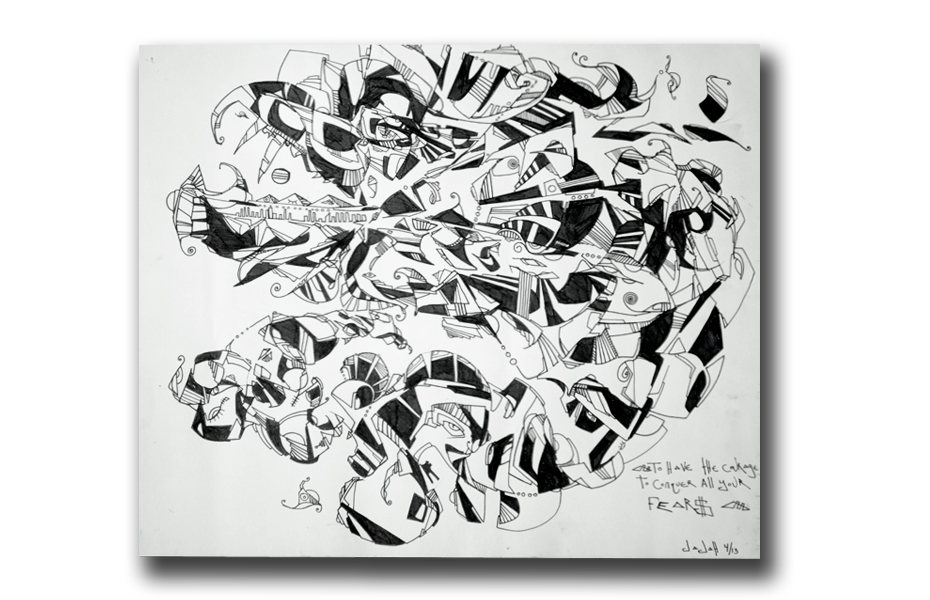 To HAvE the couRage
To ConquER All youR
FEAR$
4/13